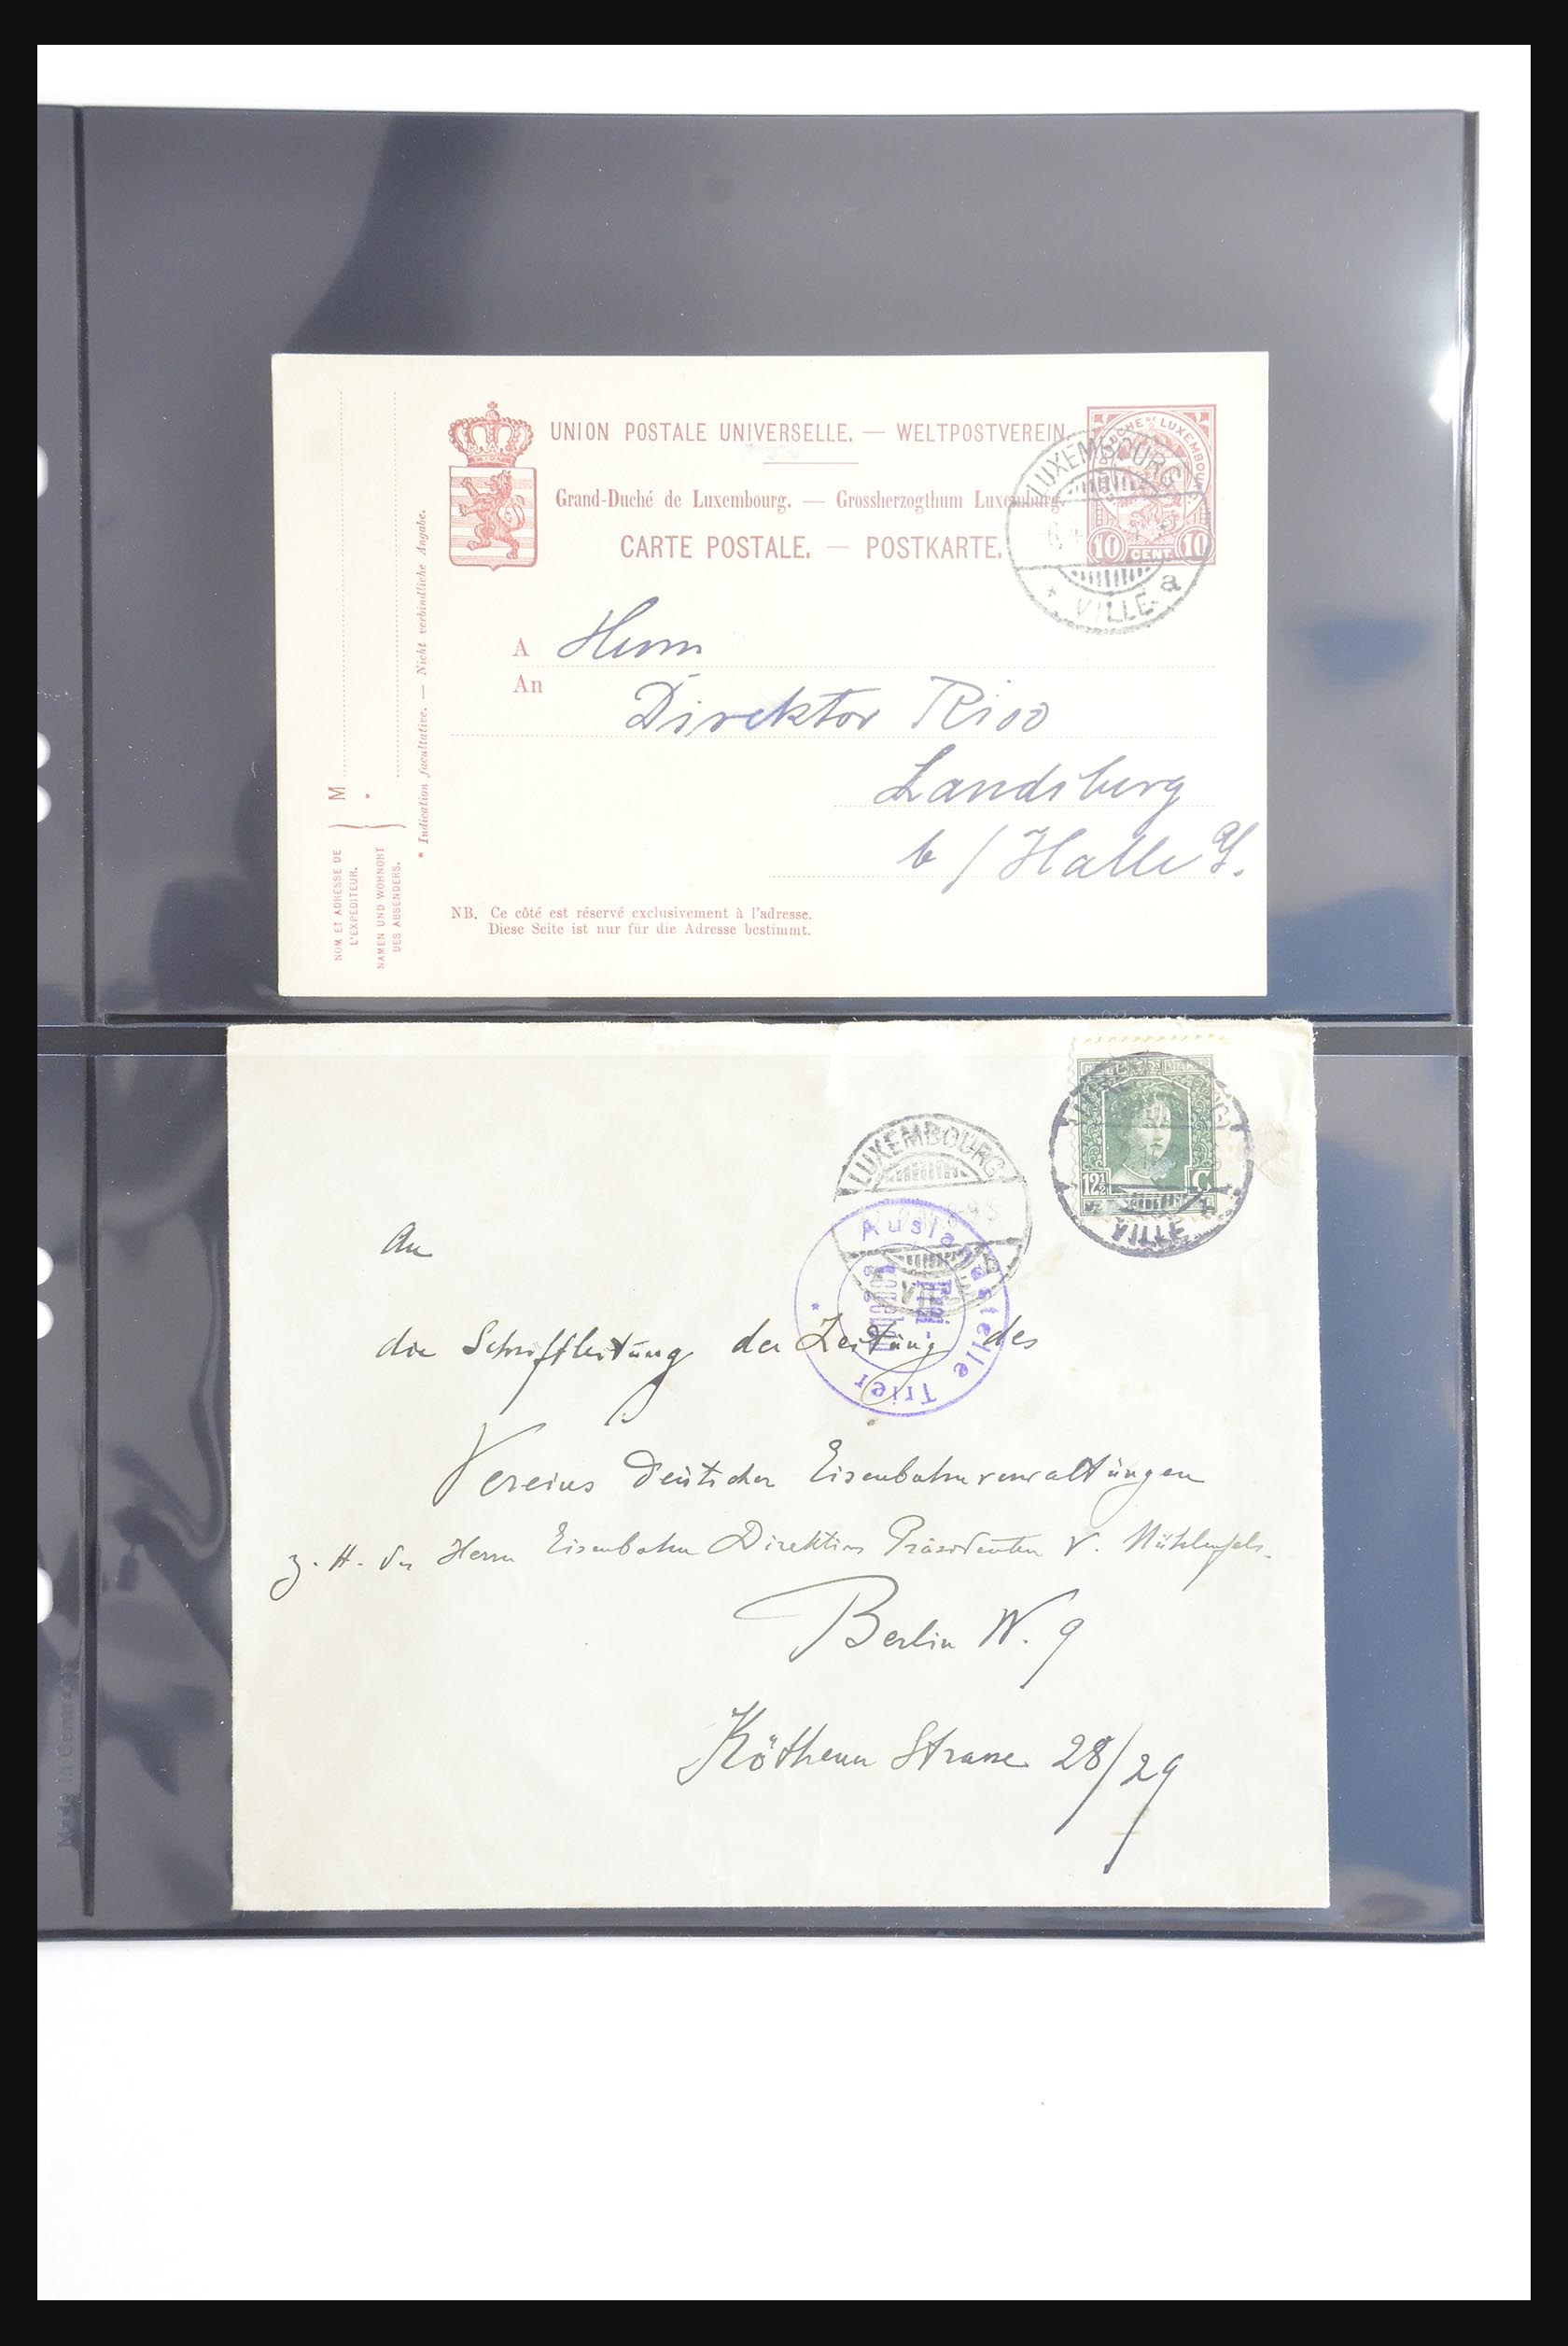 UNION POSTALE UNIVERSELLE. — WELTPOSTVEREIN.
Grand-Duché de Luxembourg. — Grossherzogthum Luxemburg.
CARTE POSTALE. — POSTKARTE.
GRAND-DUCHÉ DE LUXEMBOURG
10 CENT. 10
LUXEMBOURG
VILLE a
A Herrn
An
Direktor
Landsberg
b/Halle
M
*
NOM ET ADRESSE DE
L'EXPÉDITEUR.
NAMEN UND WOHNORT
DES ABSENDERS.
* Indication facultative. — Nicht verbindliche Angabe.
NB. Ce côté est réservé exclusivement à l'adresse.
Diese Seite ist nur für die Adresse bestimmt.
12½ C
VILLE
LUXEMBOURG
VILLE
Auslandsstelle Trier
Frei-
gegeben
An
die Schriftleitung der Zeitung des
Vereins Deutscher Eisenbahnverwaltungen
z. H. des Herrn Eisenbahn Direktions Präsidenten v. Mühlenfels.
Berlin W. 9
Köthener Strasse 28/29
Made in Germany